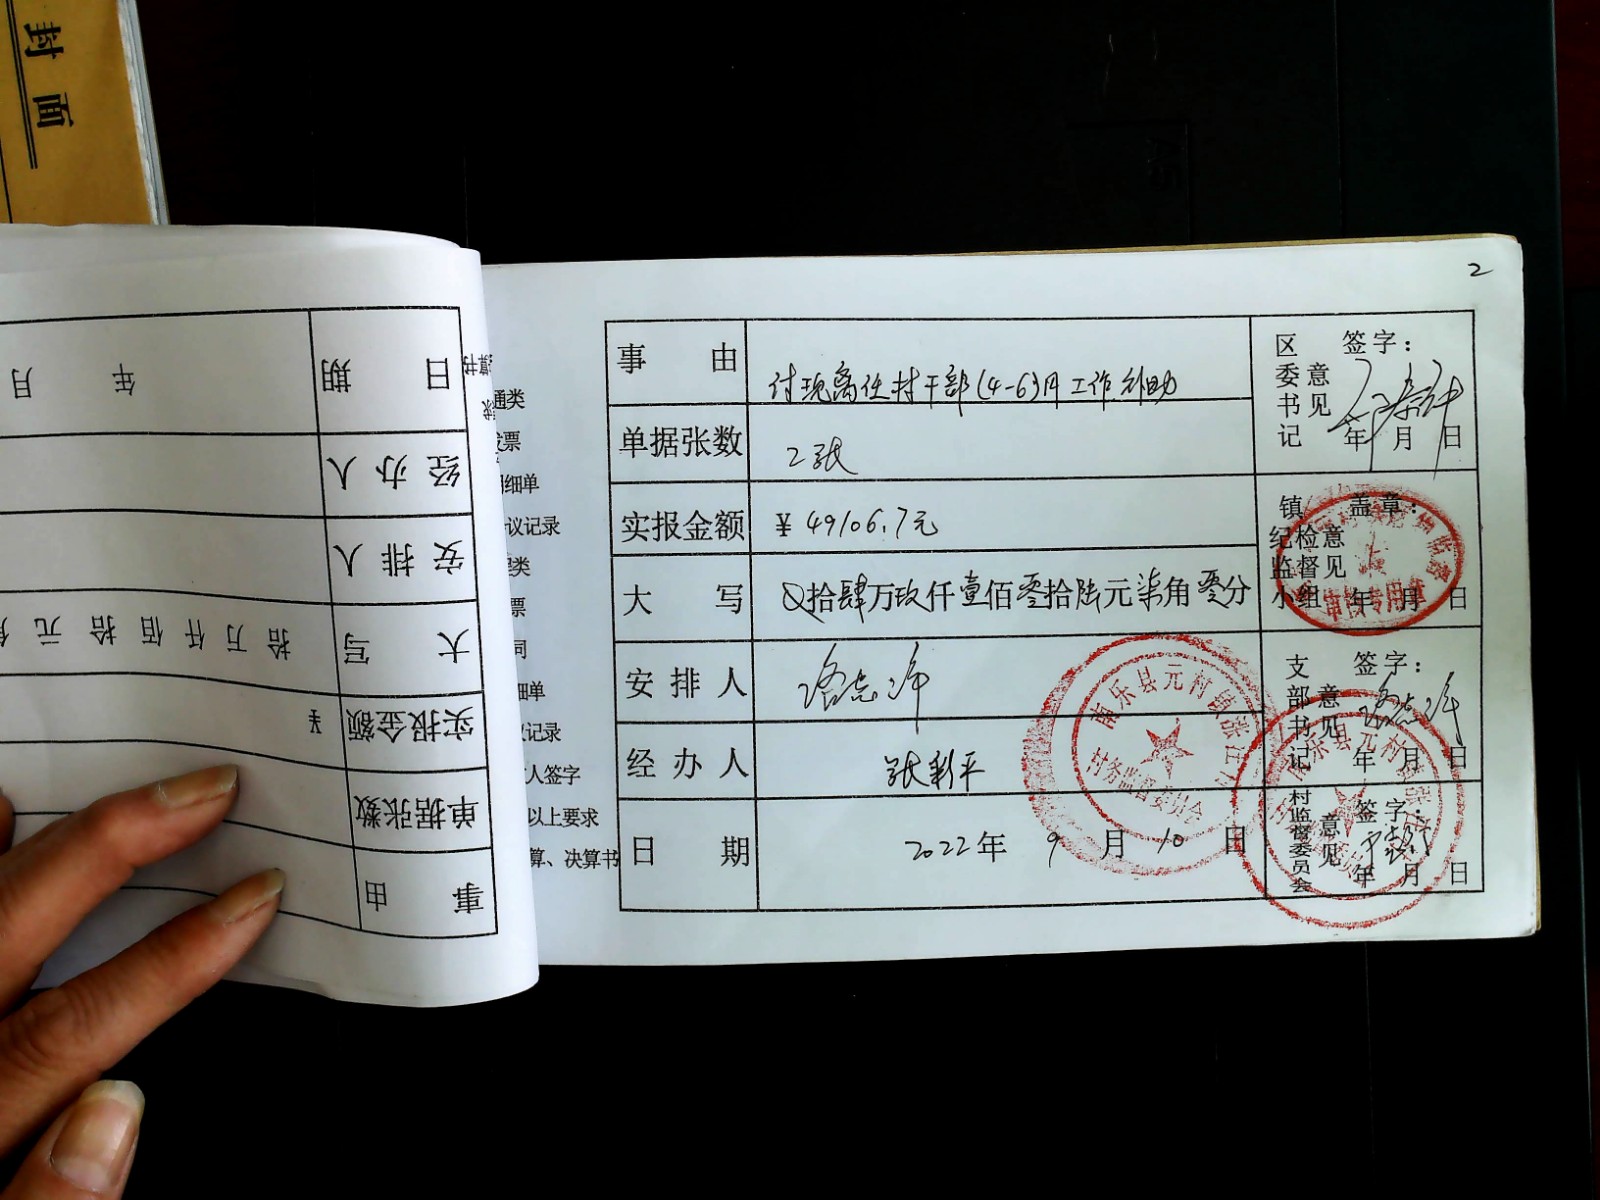 封面
2
事由
付现离任村干部(4-6)月工作补助
单据张数
2张
实报金额
¥49106.7元
大写
⊗拾肆万玖仟壹佰零拾陆元柒角零分
安排人
经办人
张彩平
日期
2022年9月10日
区委书记意见
签字:
年月日
镇纪检监督小组意见
盖章:
年月日
支部书记意见
签字:
年月日
村监督委员会意见
签字:
年月日
南乐县元村镇
村务监督委员会
南乐县元村镇
通类
发票
明细单
议记录
票
同
细单
议记录
人签字
以上要求
算、决算书
日期
年月
经办人
安排人
大写
拾万仟佰拾元角
实报金额
¥
单据张数
事由